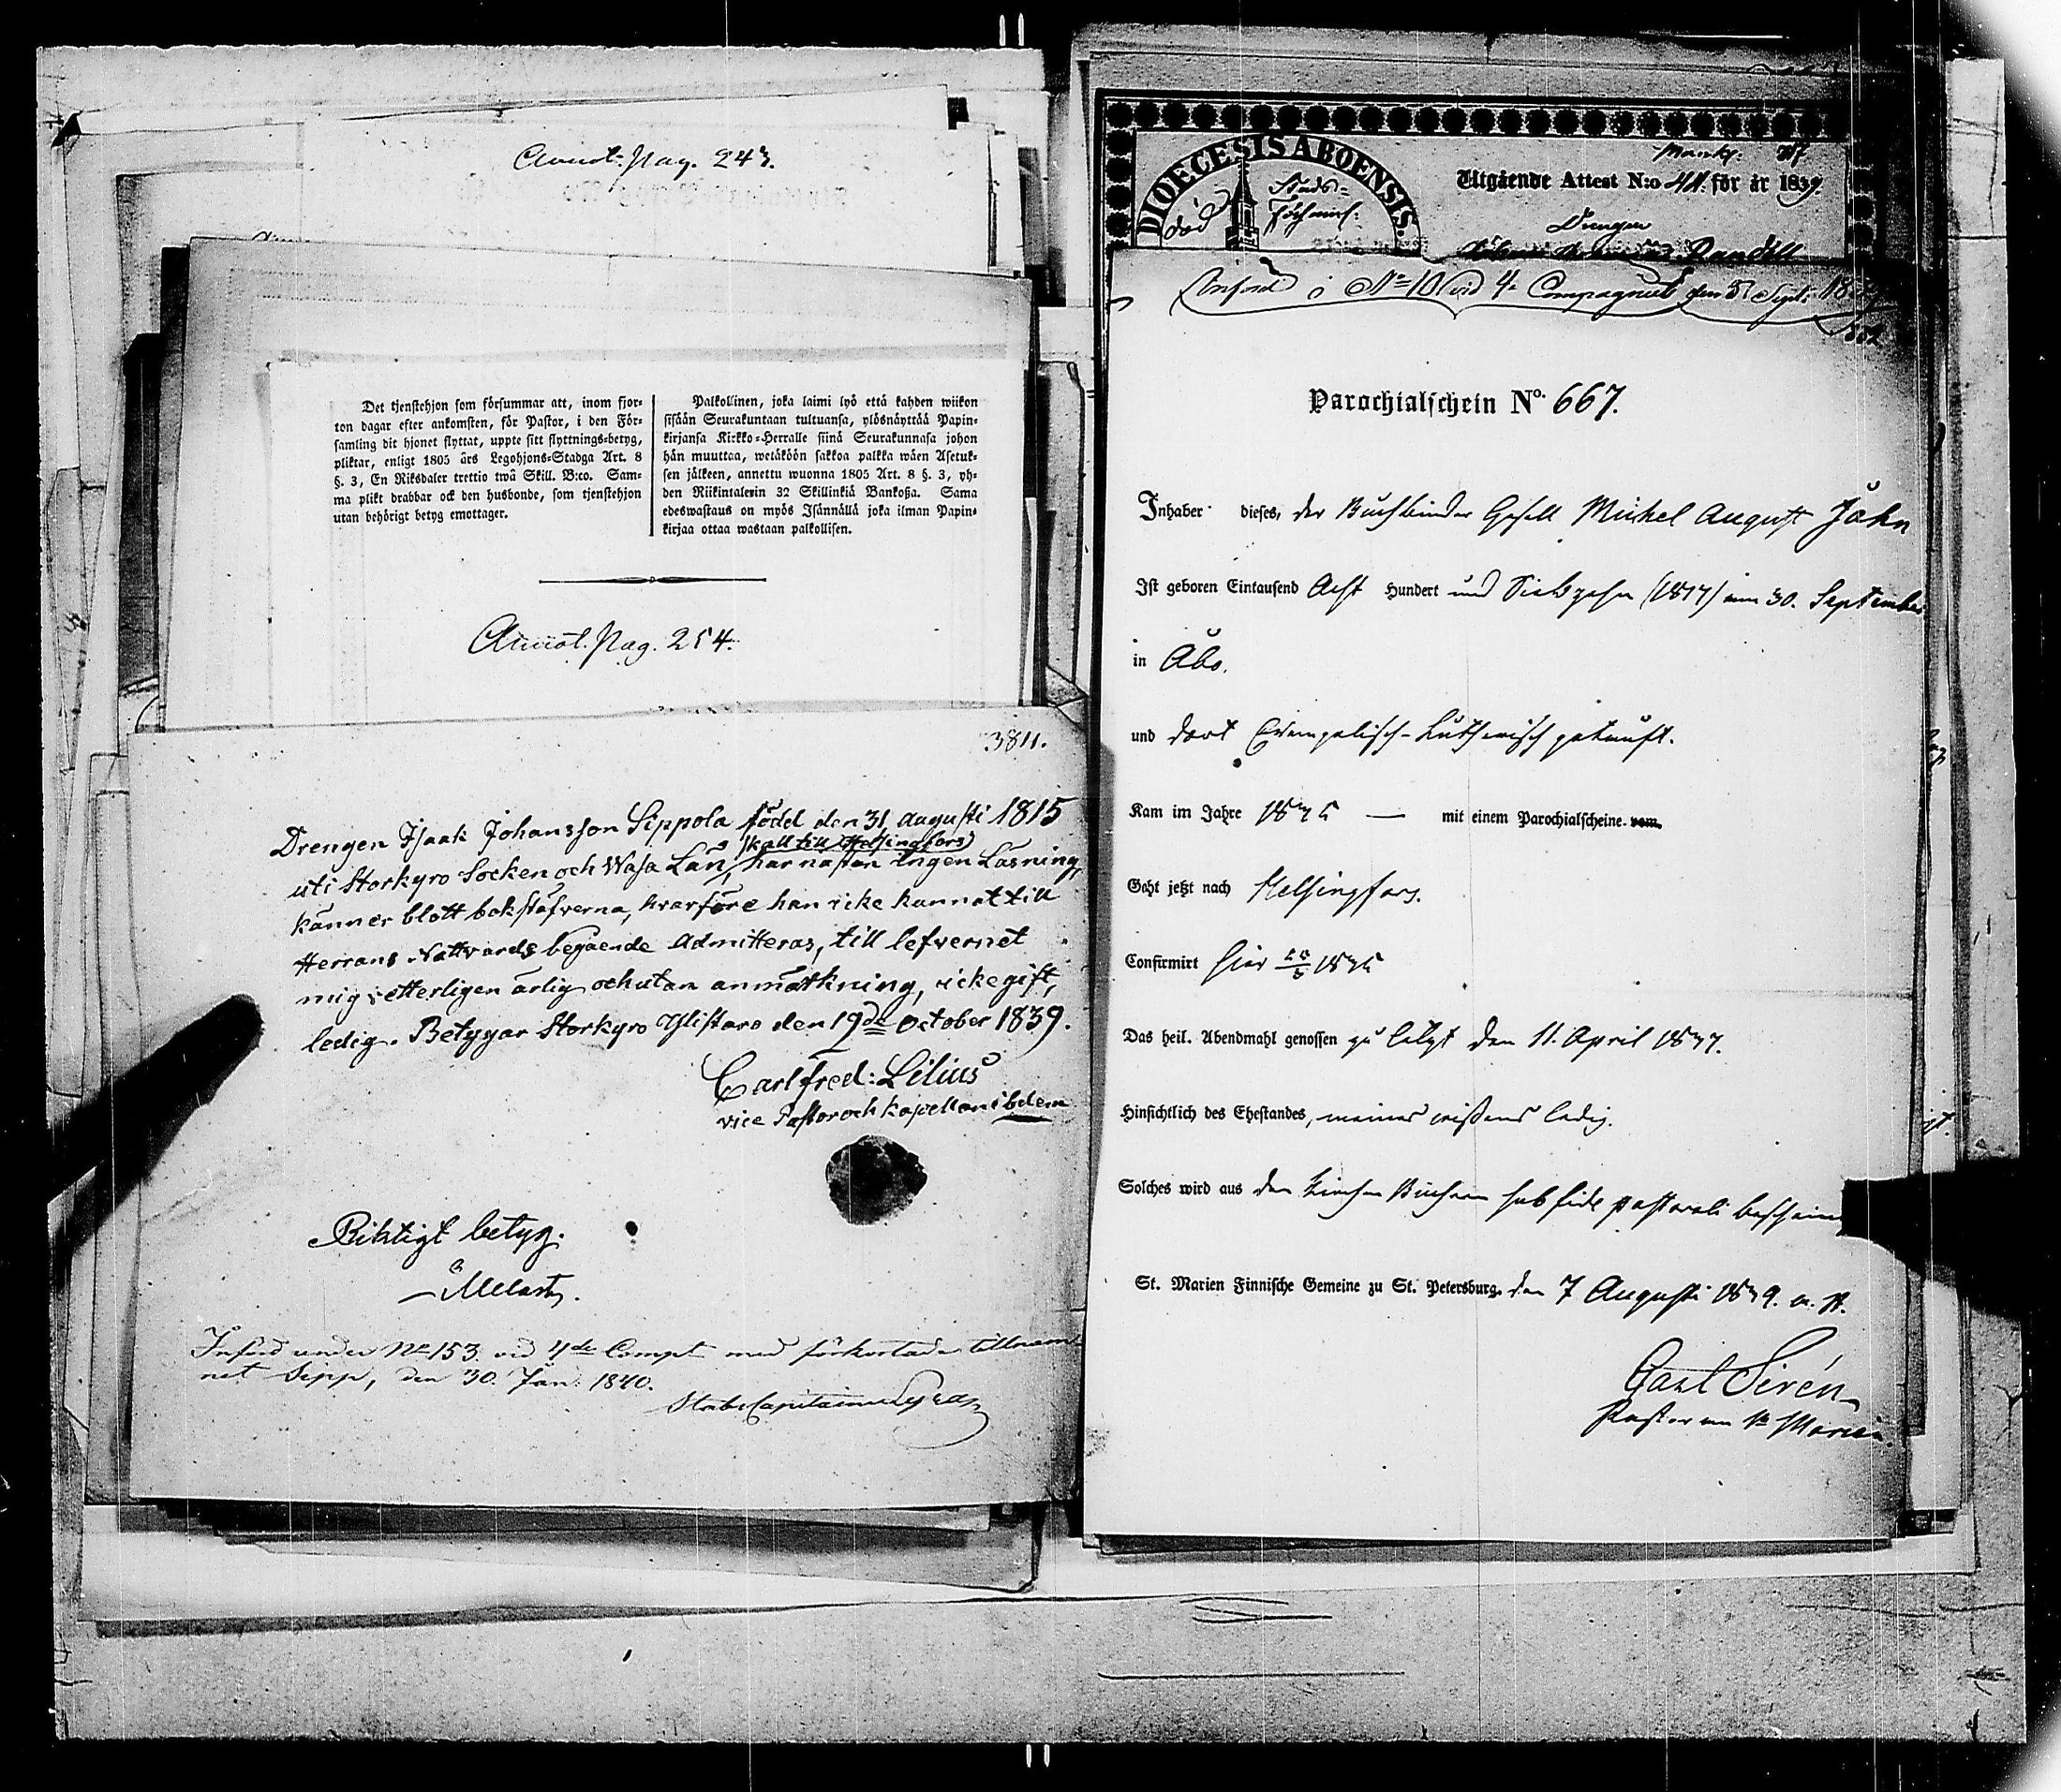 Annot. Pag. 243.
Det tjenstehjon som försummar att, inom fjor-
ton dagar efter ankomsten, för Pastor, i den För-
samling dit hjonet flyttat, uppte sitt flyttnings-betyg,
pliktar, enligt 1805 års Legohjons-Stadga Art. 8
§. 3, En Riksdaler trettio twå Skill. B:co. Sam-
ma plikt drabbar ock den husbonde, som tjenstehjon
utan behörigt betyg emottager.
Palkollinen, joka laimi lyö että kahden wiikon
sisään Seurakuntaan tultuansa, ylösnäyttää Papin-
kirjansa Kirkko-Herralle siinä Seurakunnasa johon
hän muuttaa, wetäköön sakkoa palkka wäen Asetuk-
sen jälkeen, annettu wuonna 1805 Art. 8 §. 3, yh-
den Riikintalerin 32 Skillinkiä Bankoßa. Sama
edeswastaus on myös Isännällä joka ilman Papin-
kirjaa ottaa wastaan palkollisen.
Annot. Pag. 254.
3811.
Drengen Isaak Johansson Sippola född den 31 augusti 1815
skall till Helsingfors
uti Storkyro Socken och Wasa Län, har nästan ingen Läsning,
känner blott bokstäfverna, hvarföre han icke kunnat till
Herrans Nattvards begående admitteras, till lefvernet
mig vetterligen ärlig och utan anmärkning, icke gift,
ledig. Betygar Storkyro Ylistaro den 19de October 1839.
Carl Fred: Lilius
vice Pastor och kapellan ibdem
Riktigt betyg.
Införd under No 153 vid 4de Compt med förkortade tillnam-
net Sipp, den 30 Jan: 1840.
DIOECESIS ABOENSIS.
död
Utgående Attest N:o 41. för år 1839.
Drengen
Införd i No 10 vid 4e Compagniet den 5 Sept:
Parochialschein No. 667.
Inhaber dieses, der Buchbinder Gesell Michel August Jahn
Ist geboren Eintausend Acht Hundert und Siebzehn (1817) am 30. September
in Åbo.
und dort Evangelisch-Lutherisch getauft.
Kam im Jahre 1835 — mit einem Parochialscheine vom
Geht jetzt nach Helsingfors.
Confirmirt hier 1835
Das heil. Abendmahl genossen zu letzt den 11. April 1837.
Hinsichtlich des Ehestandes, meines wißens ledig.
Solches wird aus den Kirchen Büchern sub fide pastorali beschein
St. Marien Finnische Gemeine zu St. Petersburg. den 7 Augusti 1839. a. St.
Carl Sirén
Pastor an St Marien.